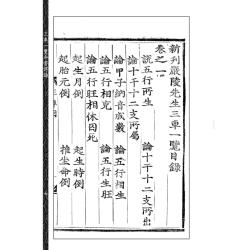 新刊嚴陵先生三車一覽目錄
卷之一
說五行所生 論十干十二支所出
論十干十二支所屬
論甲子納音成數 論五行相生
論五行相克 論五行生旺
論五行旺相休囚死
起生月例 起生時例
起胎元例 推坐命例